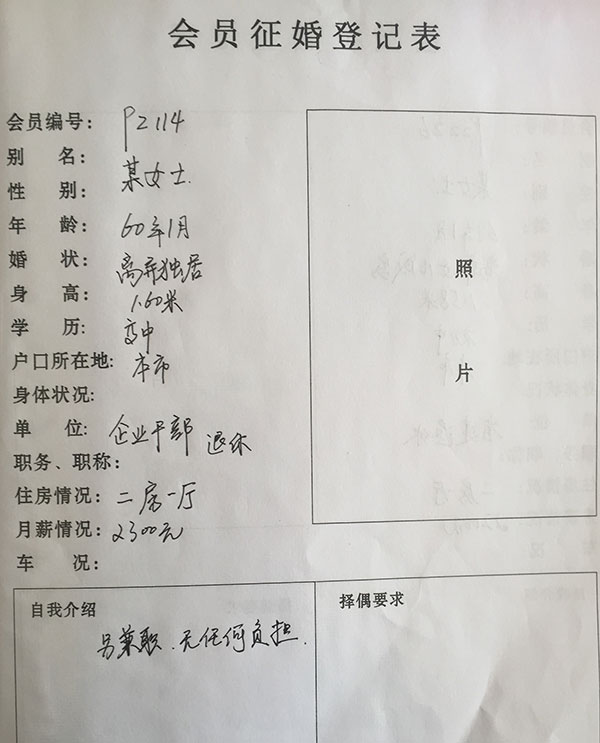 会员征婚登记表
会员编号： P2114
别 名： 某女士
性 别：
年 龄： 60年1月
婚 状： 离异独居
身 高： 1.60米
学 历： 高中
户口所在地： 本市
身体状况:
单 位: 企业干部 退休
职务、职称：
住房情况： 二房一厅
月薪情况： 2300元
车 况：
照
片
自我介绍
另兼职.无任何负担.
择偶要求